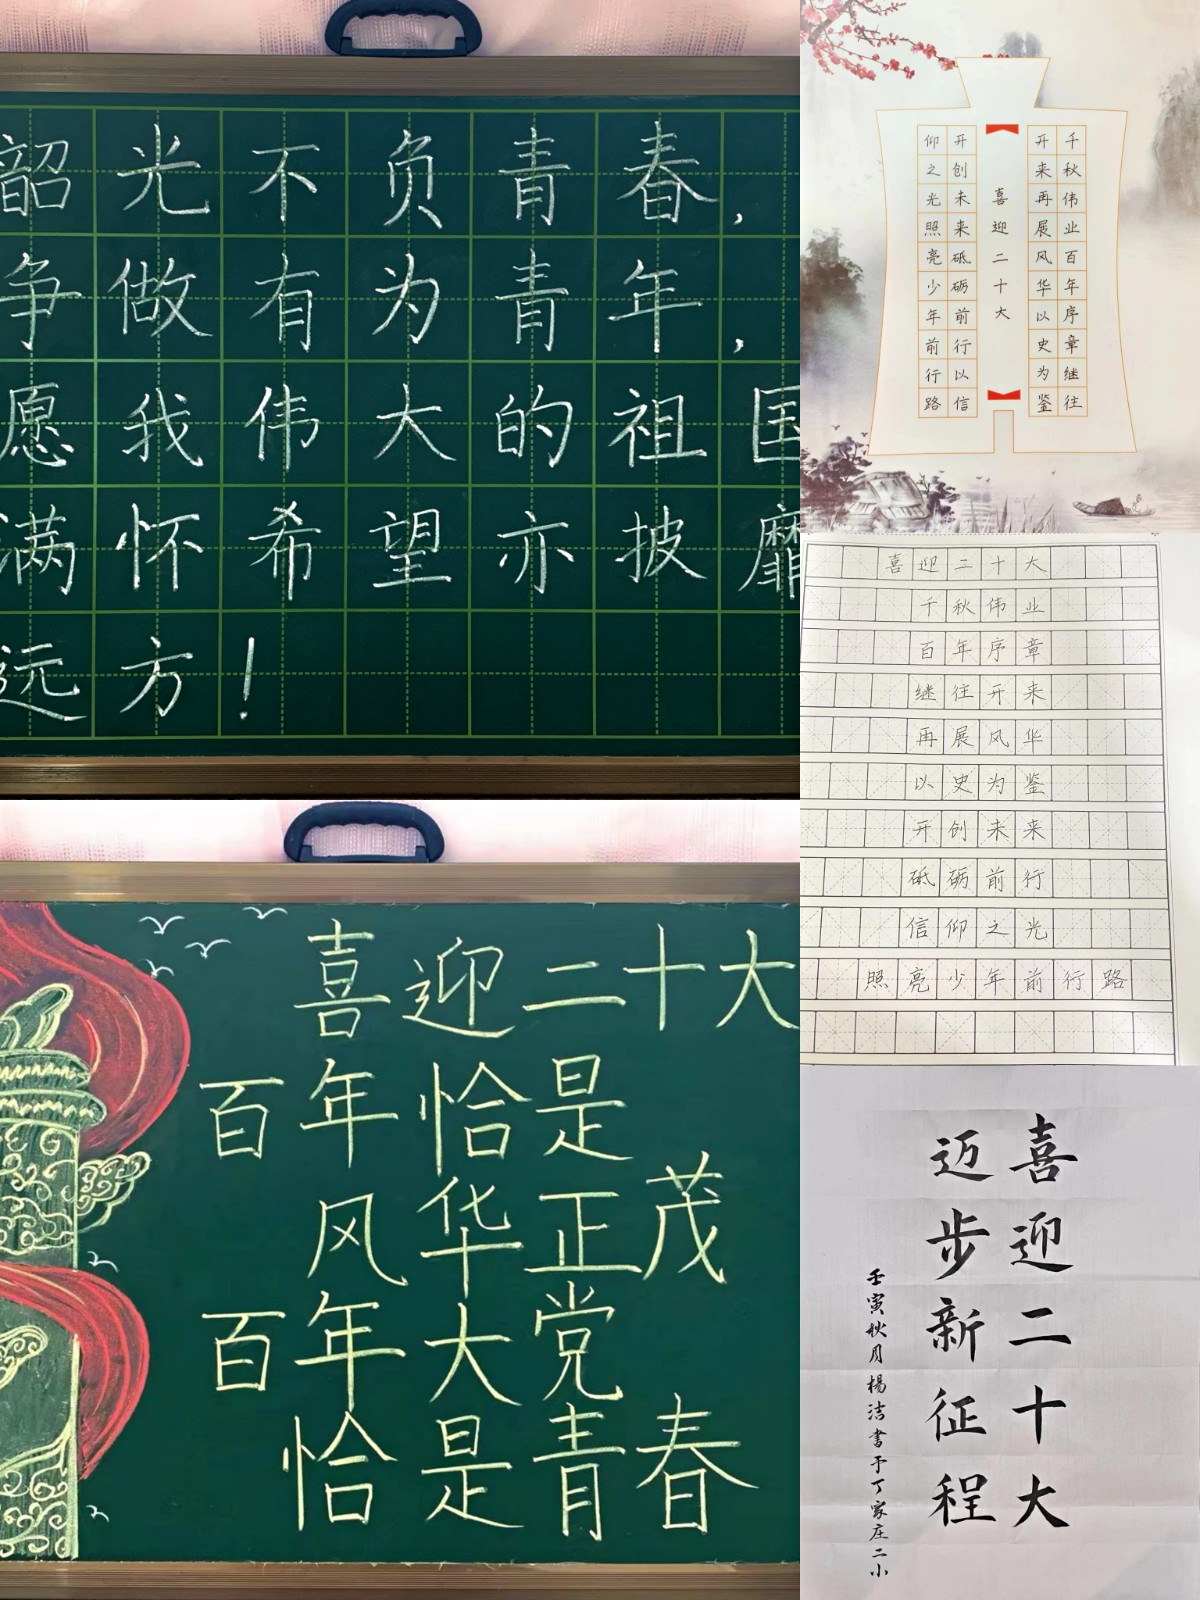 韶光不负青春,
争做有为青年,
愿我伟大的祖国
满怀希望亦披靡
远方!
喜迎二十大
百年恰是
风华正茂
百年大党
恰是青春
千秋伟业百年序章继往
开来再展风华以史为鉴
喜迎二十大
开创未来砥砺前行以信
仰之光照亮少年前行路
喜迎二十大
千秋伟业
百年序章
继往开来
再展风华
以史为鉴
开创未来
砥砺前行
信仰之光
照亮少年前行路
喜迎二十大
迈步新征程
壬寅秋月楊洁書于丁家庄二小